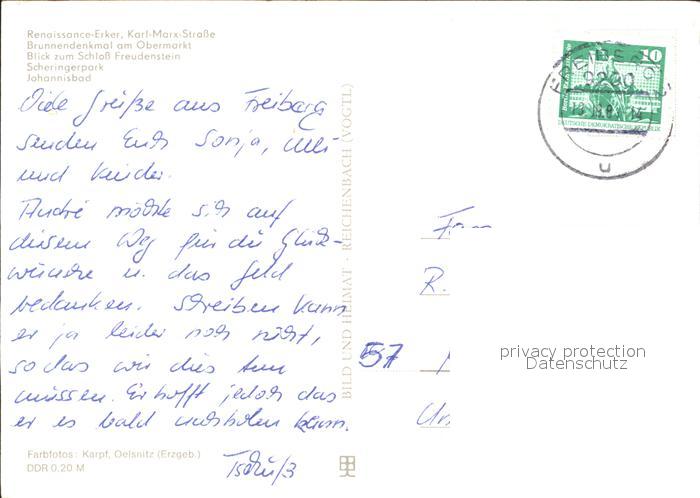 Renaissance-Erker, Karl-Marx-Straße
Brunnendenkmal am Obermarkt
Blick zum Schloß Freudenstein
Scheringerpark
Johannisbad
Viele Grüße aus Freiberg
senden Euch Sonja, Ulli
und Kinder.
André möchte sich auf
diesem Weg für die Glück-
wünsche u. das Geld
bedanken. Schreiben kann
er ja leider noch nicht,
sodas wir dies tun
müssen. Er hofft jedoch das
er es bald nachholen kann.
Tschüß
Farbfotos: Karpf, Oelsnitz (Erzgeb.)
DDR 0,20 M
BILD UND HEIMAT · REICHENBACH (VOGTL)
10
DEUTSCHE DEMOKRATISCHE REPUBLIK
9200
u
Frau
R.
57
privacy protection
Datenschutz